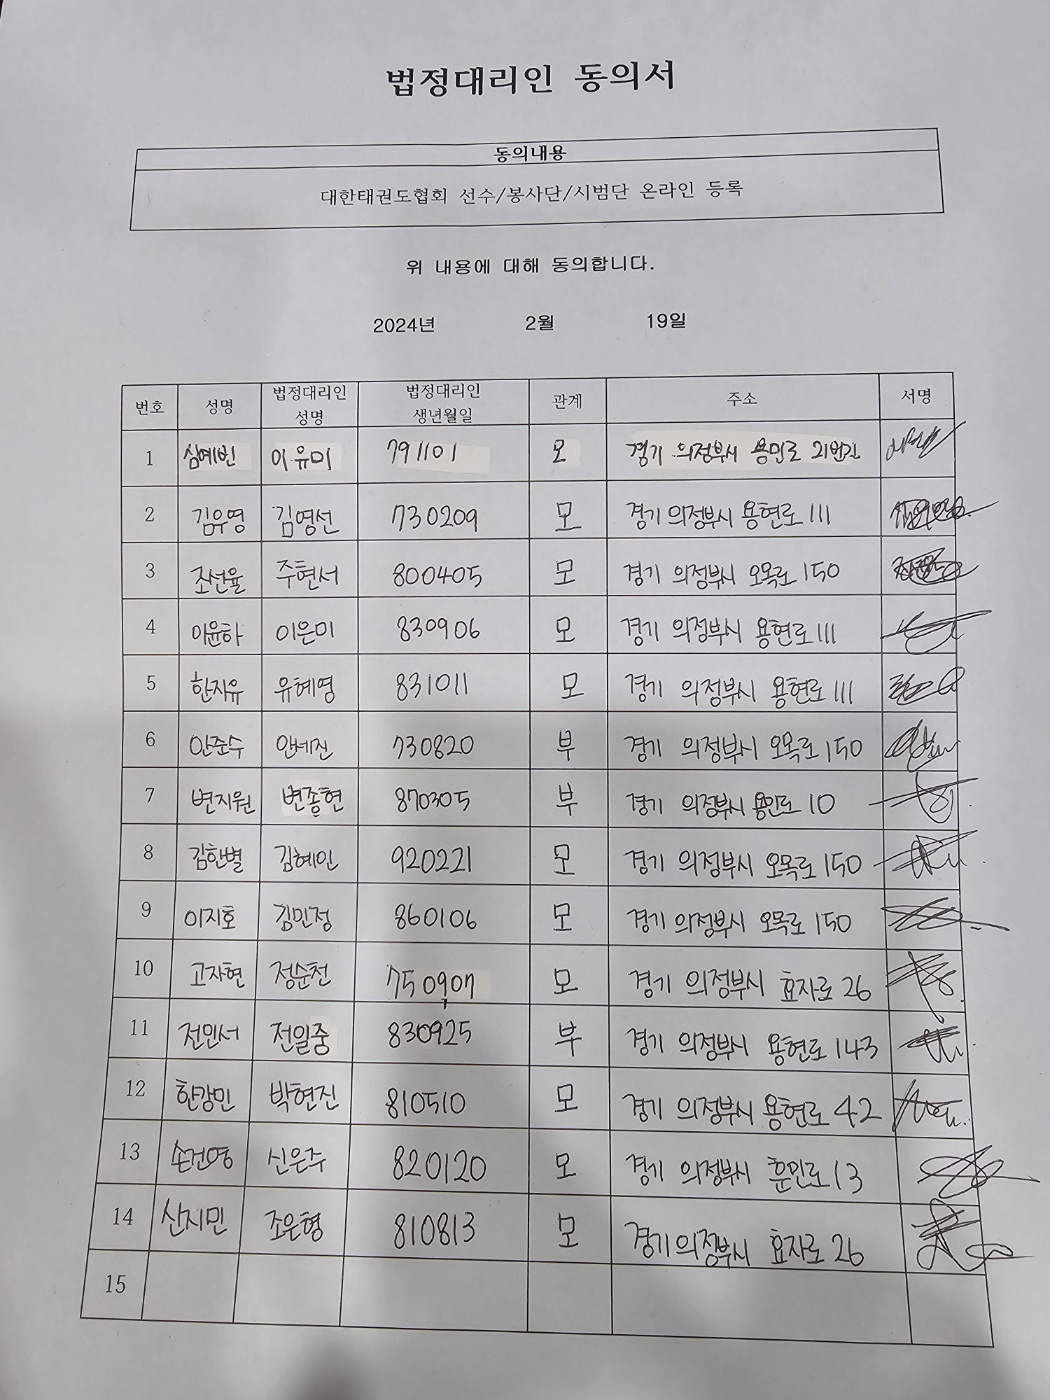 법정대리인 동의서
동의내용
대한태권도협회 선수/봉사단/시범단 온라인 등록
위 내용에 대해 동의합니다.
2024년 2월 19일
번호 성명 법정대리인 성명 법정대리인 생년월일 관계 주소 서명
1 심예빈 이유미 791101 모 경기 의정부시 용민로 21번길
2 김유영 김영선 730209 모 경기 의정부시 용현로 111
3 조선율 주현서 800405 모 경기 의정부시 오목로 150
4 이윤하 이은미 830906 모 경기 의정부시 용현로 111
5 한지유 유혜영 831011 모 경기 의정부시 용현로 111
6 안준수 안세진 730820 부 경기 의정부시 오목로 150
7 변지원 변종현 870305 부 경기 의정부시 용민로 10
8 김한별 김혜인 920221 모 경기 의정부시 오목로 150
9 이지호 김민정 860106 모 경기 의정부시 오목로 150
10 고자현 정순천 750907 모 경기 의정부시 효자로 26
11 전민서 전일중 830925 부 경기 의정부시 용현로 143
12 한강민 박현진 810510 모 경기 의정부시 용현로 42
13 손건영 신은주 820120 모 경기 의정부시 훈민로 13
14 산지민 조은형 810813 모 경기 의정부시 효자로 26
15